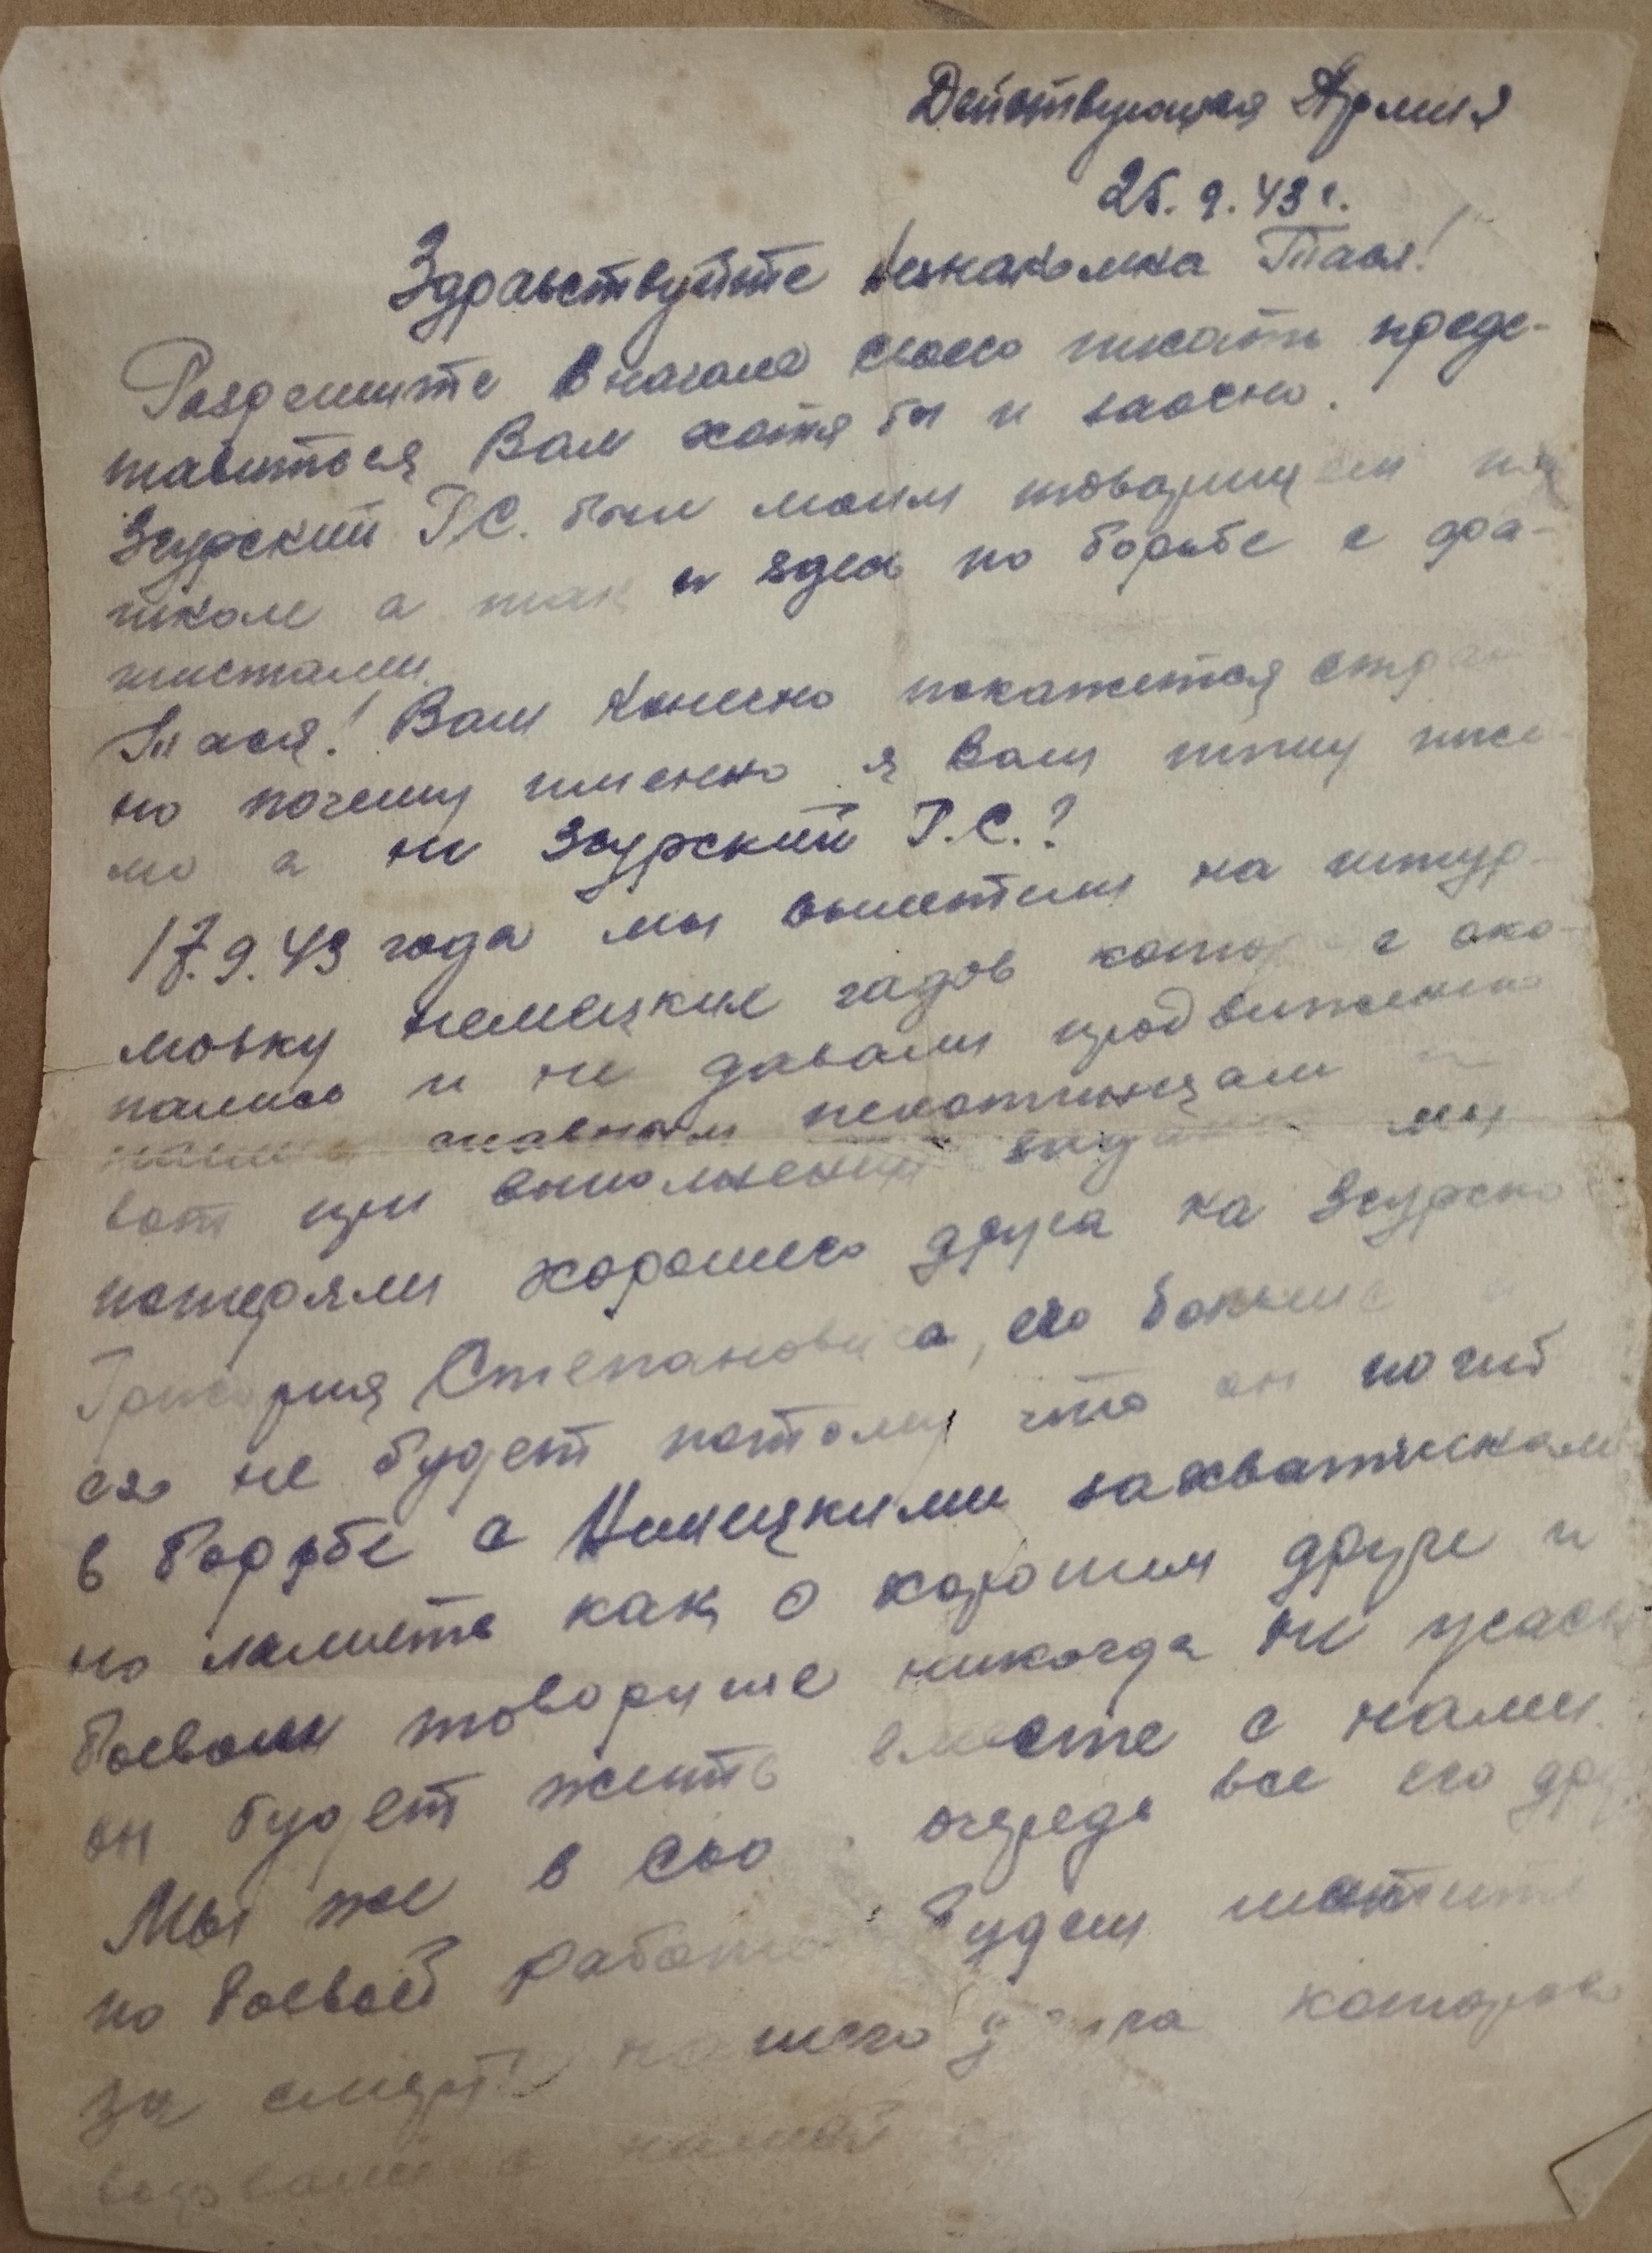 Действующая Армия
25.9.43 г.
Здравствуйте незнакомка Тася!
Разрешите вначале своего писать предс-
тавиться Вам хотя бы и заочно.
Згурский Г.С. был моим товарищем по
школе а так и здесь по борьбе с фа-
шистами.
Тася! Вам конечно покажется стран
но почему именно я Вам пишу пись-
мо а не Згурский Г.С.?
17.9.43 года мы вылетели на штур-
мовку немецких гадов которые око-
пались и не давали продвижению
нашим славным пехотинцам и
вот при выполнении задания мы
потеряли хорошего друга на Згурско
Григория Степановича, его больше
его не будет потому что он погиб
в борьбе с Немецкими захватчиками
но память как о хорошим друге и
боевом товарище никогда не угасн
он будет жить вместе с нами.
Мы же в сво очередь все его дру
по боевой работе будем мстить
за смерть нашего друга которого
нашей